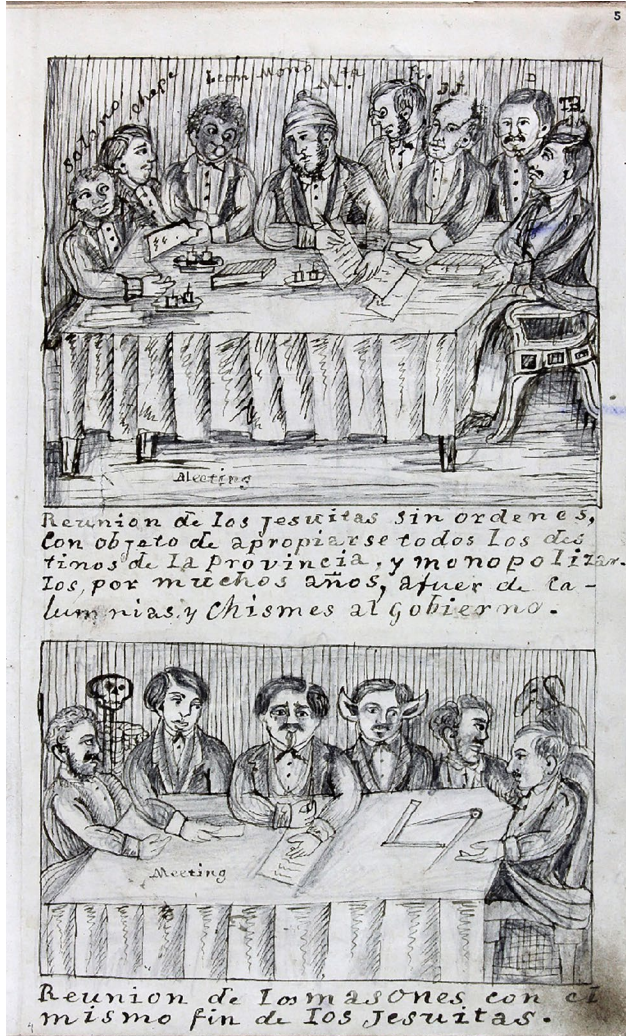 5
Solano Chepe Leon Mono Mtn R. J.J. D TB
Meeting
Reunion de los Jesuitas sin ordenes,
Con objeto de apropiarse todos los des
tinos de la Provincia, y monopolizar-
los, por muchos años, afuer de Ca-
lumnias, y Chismes al Gobierno.
Meeting
Reunion de los masones con el
mismo fin de los Jesuitas.